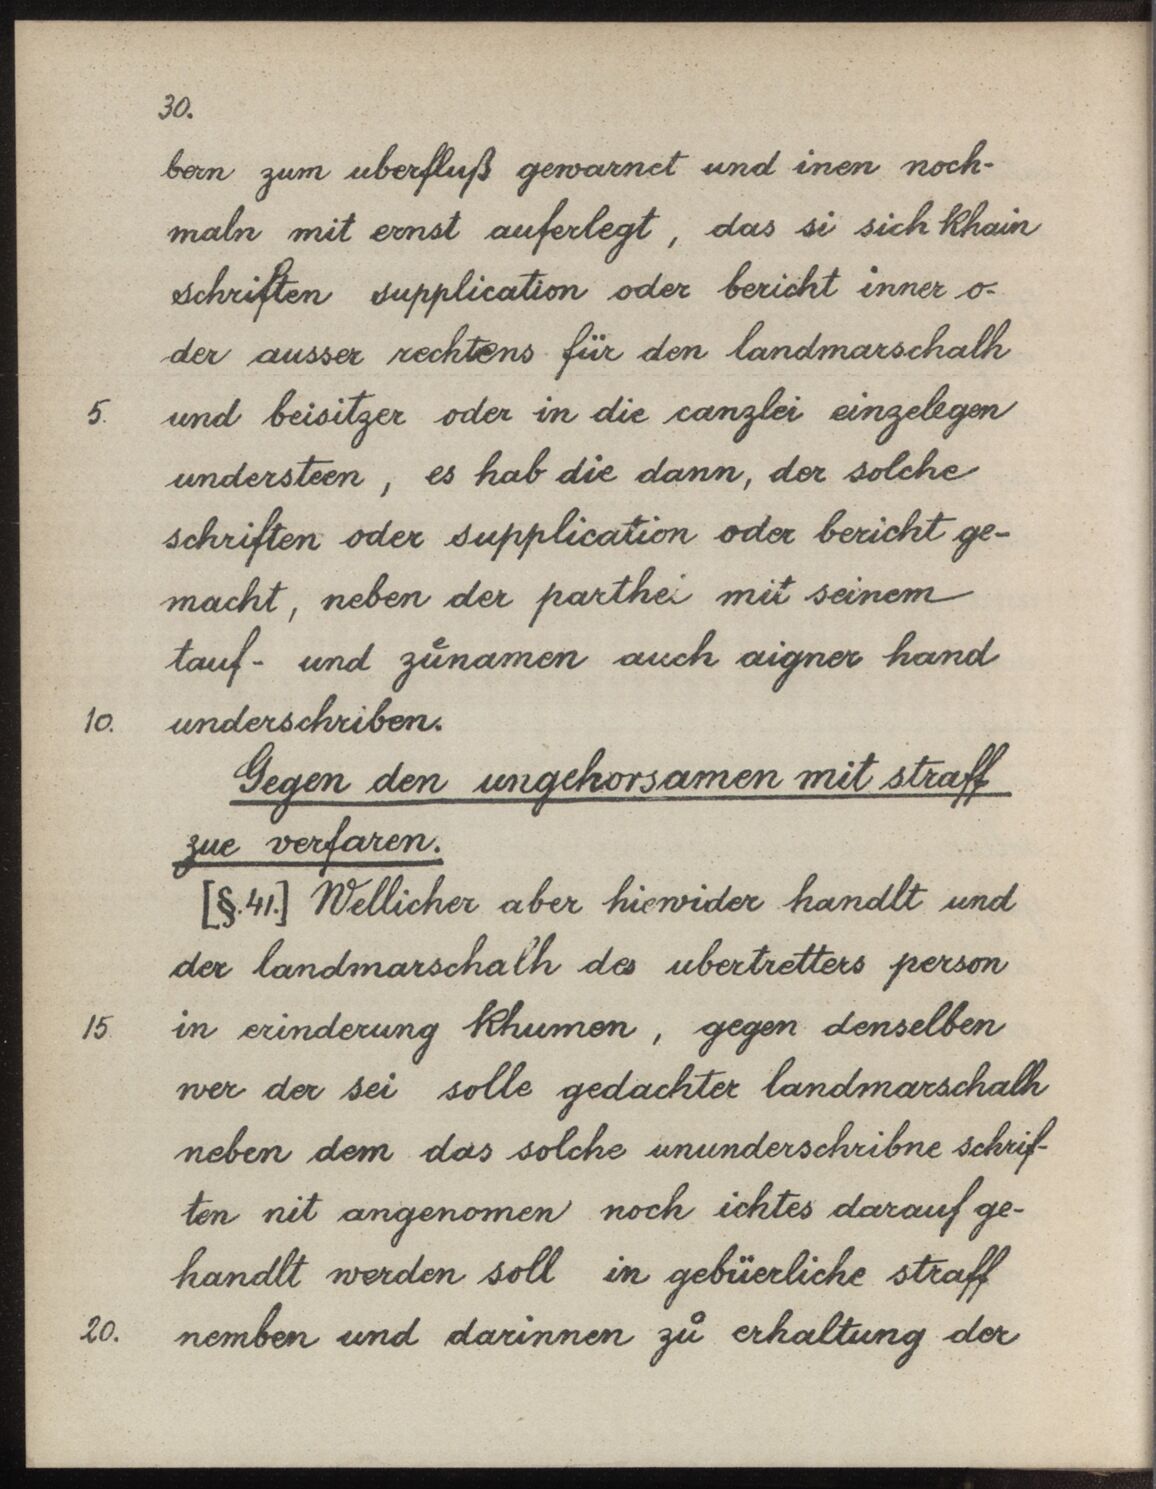 30.
bern zum uberfluß gewarnet und inen noch-
maln mit ernst auferlegt, das si sich khain
schriften supplication oder bericht inner o-
der ausser rechtens für den landmarschalh
5. und beisitzer oder in die canzlei einzelegen
understeen, es hab die dann, der solche
schriften oder supplication oder bericht ge-
macht, neben der parthei mit seinem
tauf- und zůnamen auch aigner hand
10. underschriben.
Gegen den ungehorsamen mit straff
zue verfaren.
[§.41.] Wellicher aber hiewider handlt und
der landmarschalh des ubertretters person
15 in erinderung khumen, gegen denselben
wer der sei solle gedachter landmarschalh
neben dem das solche ununderschribne schrif-
ten nit angenomen noch ichtes darauf ge-
handlt werden soll in gebüerliche straff
20. nemben und darinnen zů erhaltung der